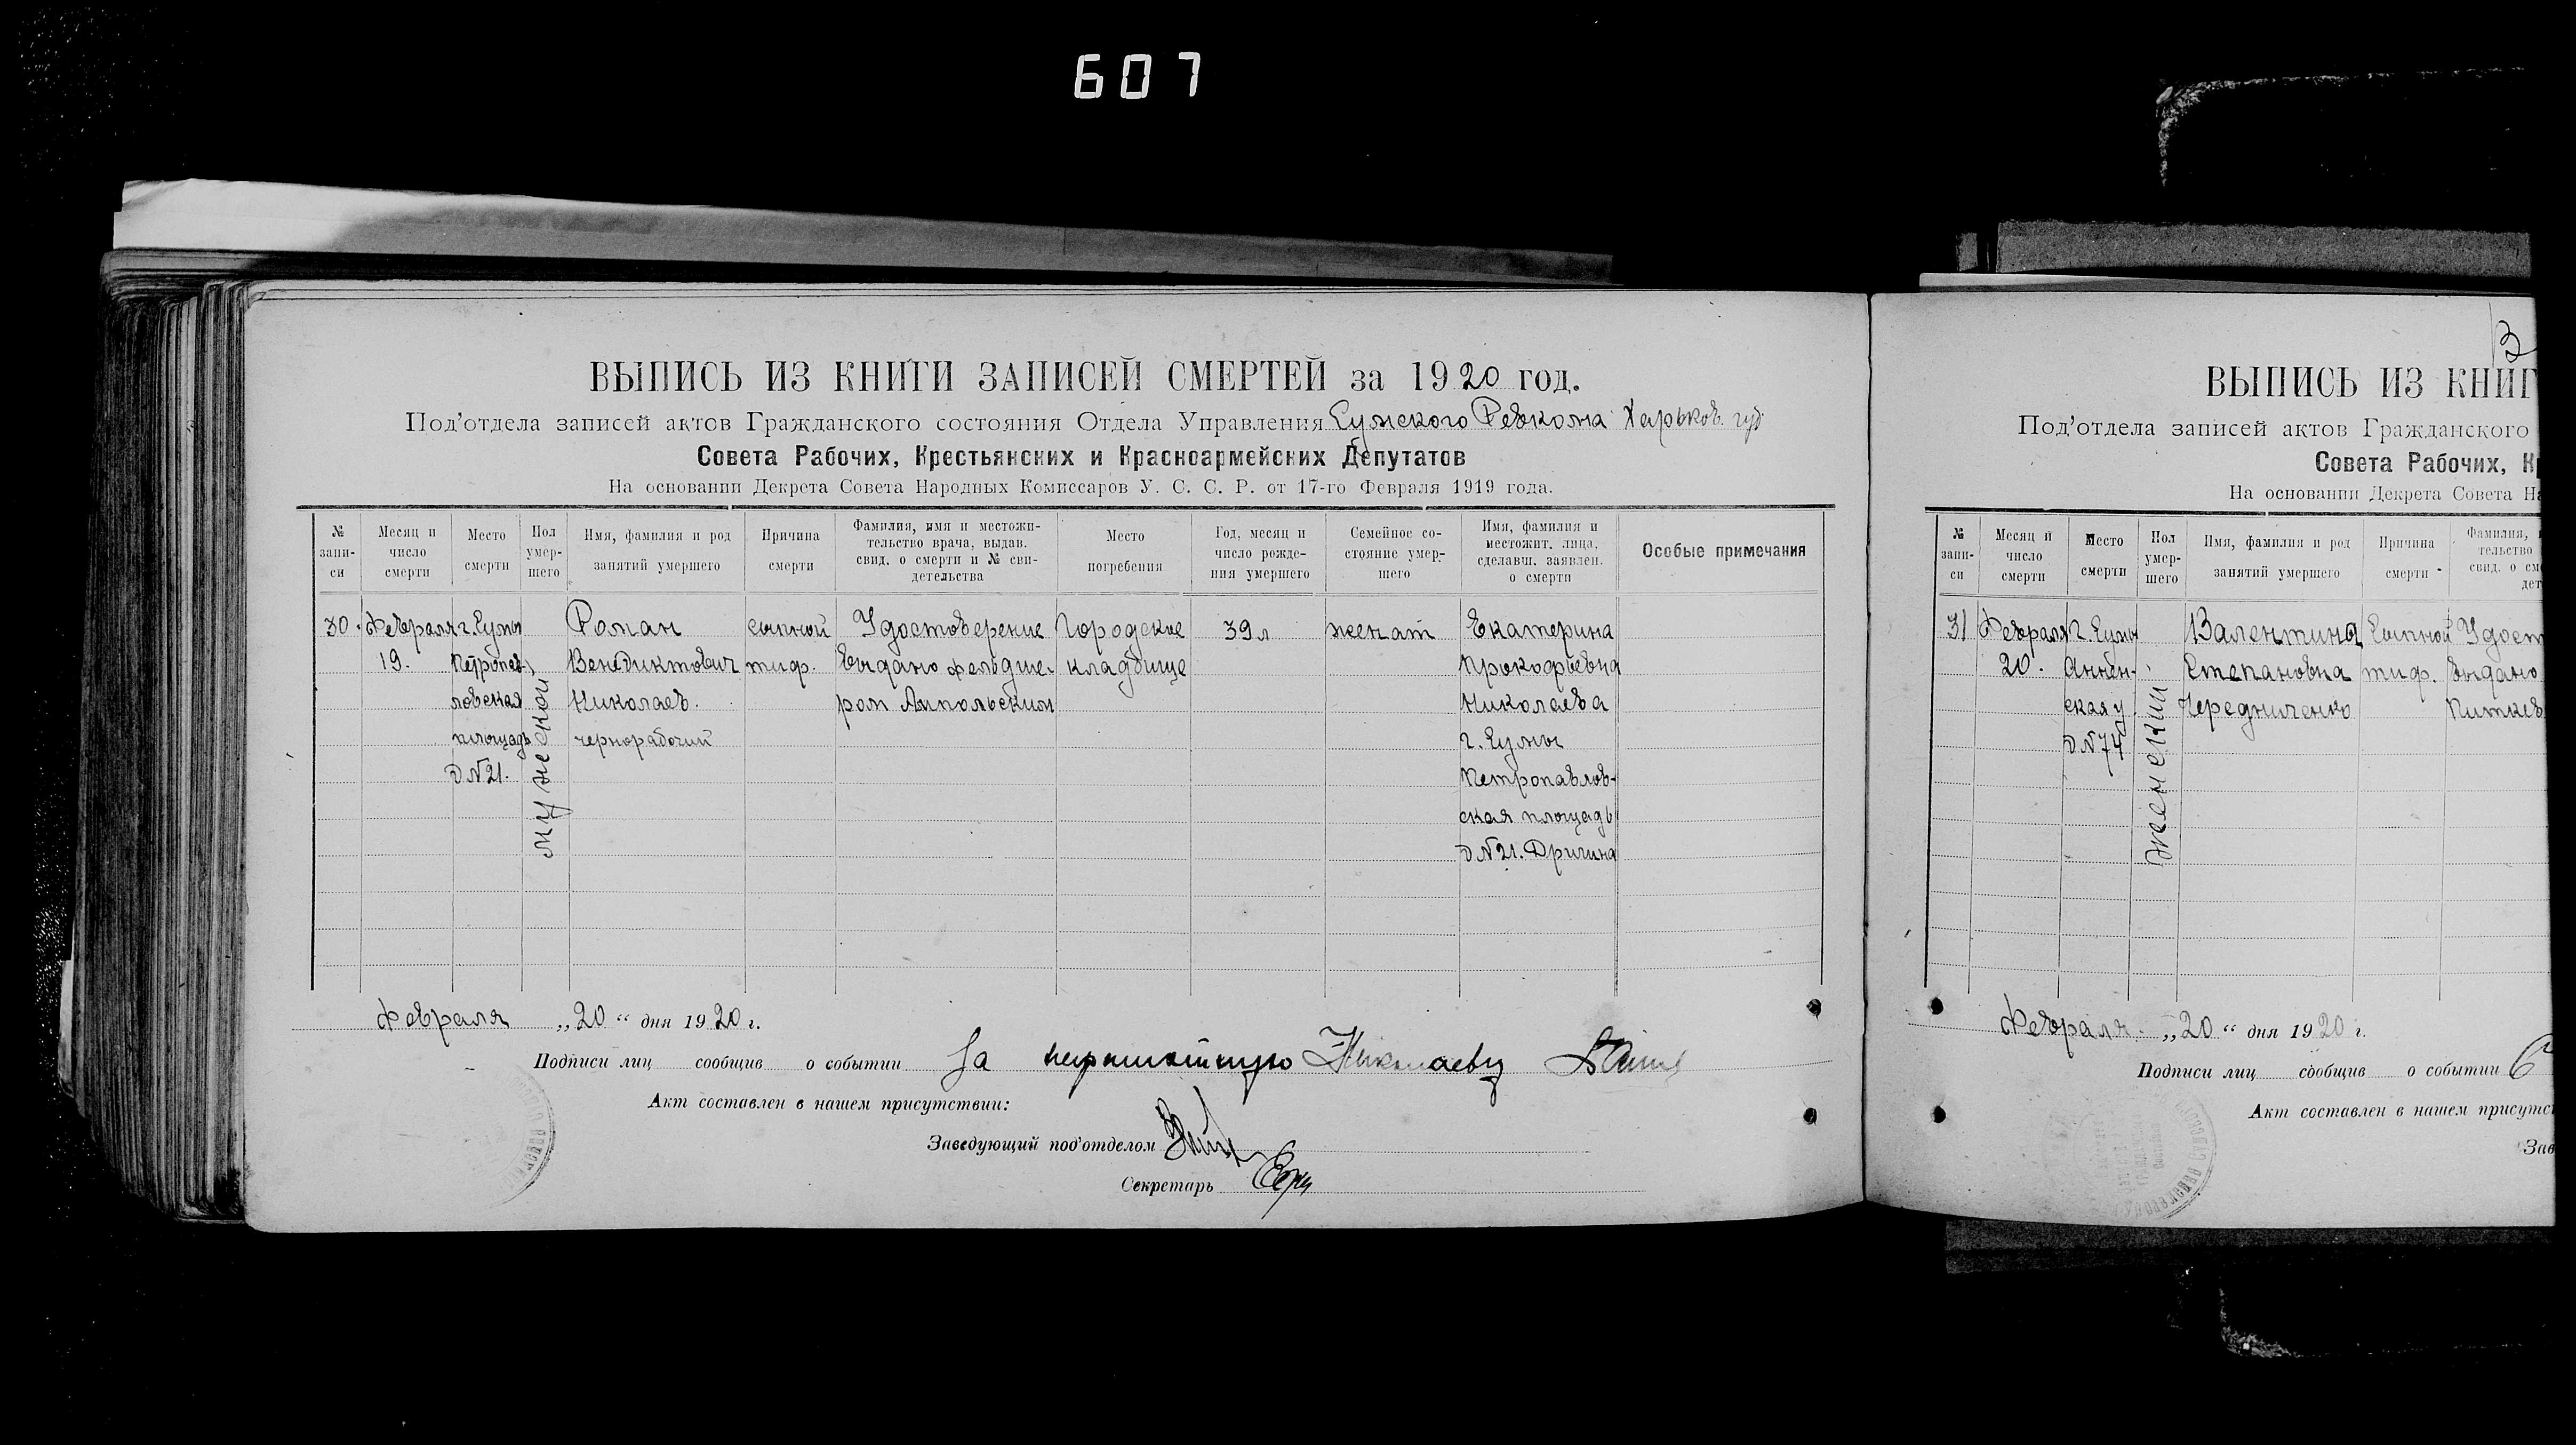 607
ВЫПИСЬ ИЗ КНИГИ ЗАПИСЕЙ СМЕРТЕЙ за 1920 год.
Под'отдела записей актов Гражданского состояния Отдела Управления Сумского Ревкома Харьков. губ
Совета Рабочих, Крестьянских и Красноармейских Депутатов
На основании Декрета Совета Народных Комиссаров У. С. С. Р. от 17-го Февраля 1919 года.
№ запи-си
Месяц и число смерти
Место смерти
Пол умер-шего
Имя, фамилия и род занятий умершего
Причина смерти
Фамилия, имя и местожи-тельство врача, выдав. свид. о смерти и № сви-детельства
Место погребения
Год, месяц и число рожде-ния умершего
Семейное со-стояние умер-шего
Имя, фамилия и местожит. лица, сделавш. заявлен. о смерти
Особые примечания
30.
Февраля
19.
г. Сумы
Петропав-
ловская
площадь
д №21.
мужской
Роман
Венедиктович
Николаев.
чернорабочий
сыпной
тиф.
Удостоверение
выдано фельдше-
ром Ампольским
Городское
кладбище
39 л
женат
Екатерина
Прокофьевна
Николаева
г. Сумы
Петропавлов-
ская площадь
д №21.
Февраля „20“ дня 1920 г.
Подписи лиц сообщив о событии За неграмотную Николаеву
Акт составлен в нашем присутствии:
Заведующий под'отделом
Секретарь
ВЫПИСЬ ИЗ КНИГ
Под'отдела записей актов Гражданского
Совета Рабочих, Кр
На основании Декрета Совета На
№ запи-си
Месяц и число смерти
Место смерти
Пол умер-шего
Имя, фамилия и род занятий умершего
Причина смерти
Фамилия, и
тельство
свид. о сме
дет
31
Февраля
20.
г. Сумы
Аннен-
ская у
д №74
женский
Валентина
Степановна
Чередниченко
Сыпной
тиф.
Удост
выдано
Питкев
Февраля „20“ дня 1920 г.
Подписи лиц сообщив о событии
Акт составлен в нашем присутст
Зав